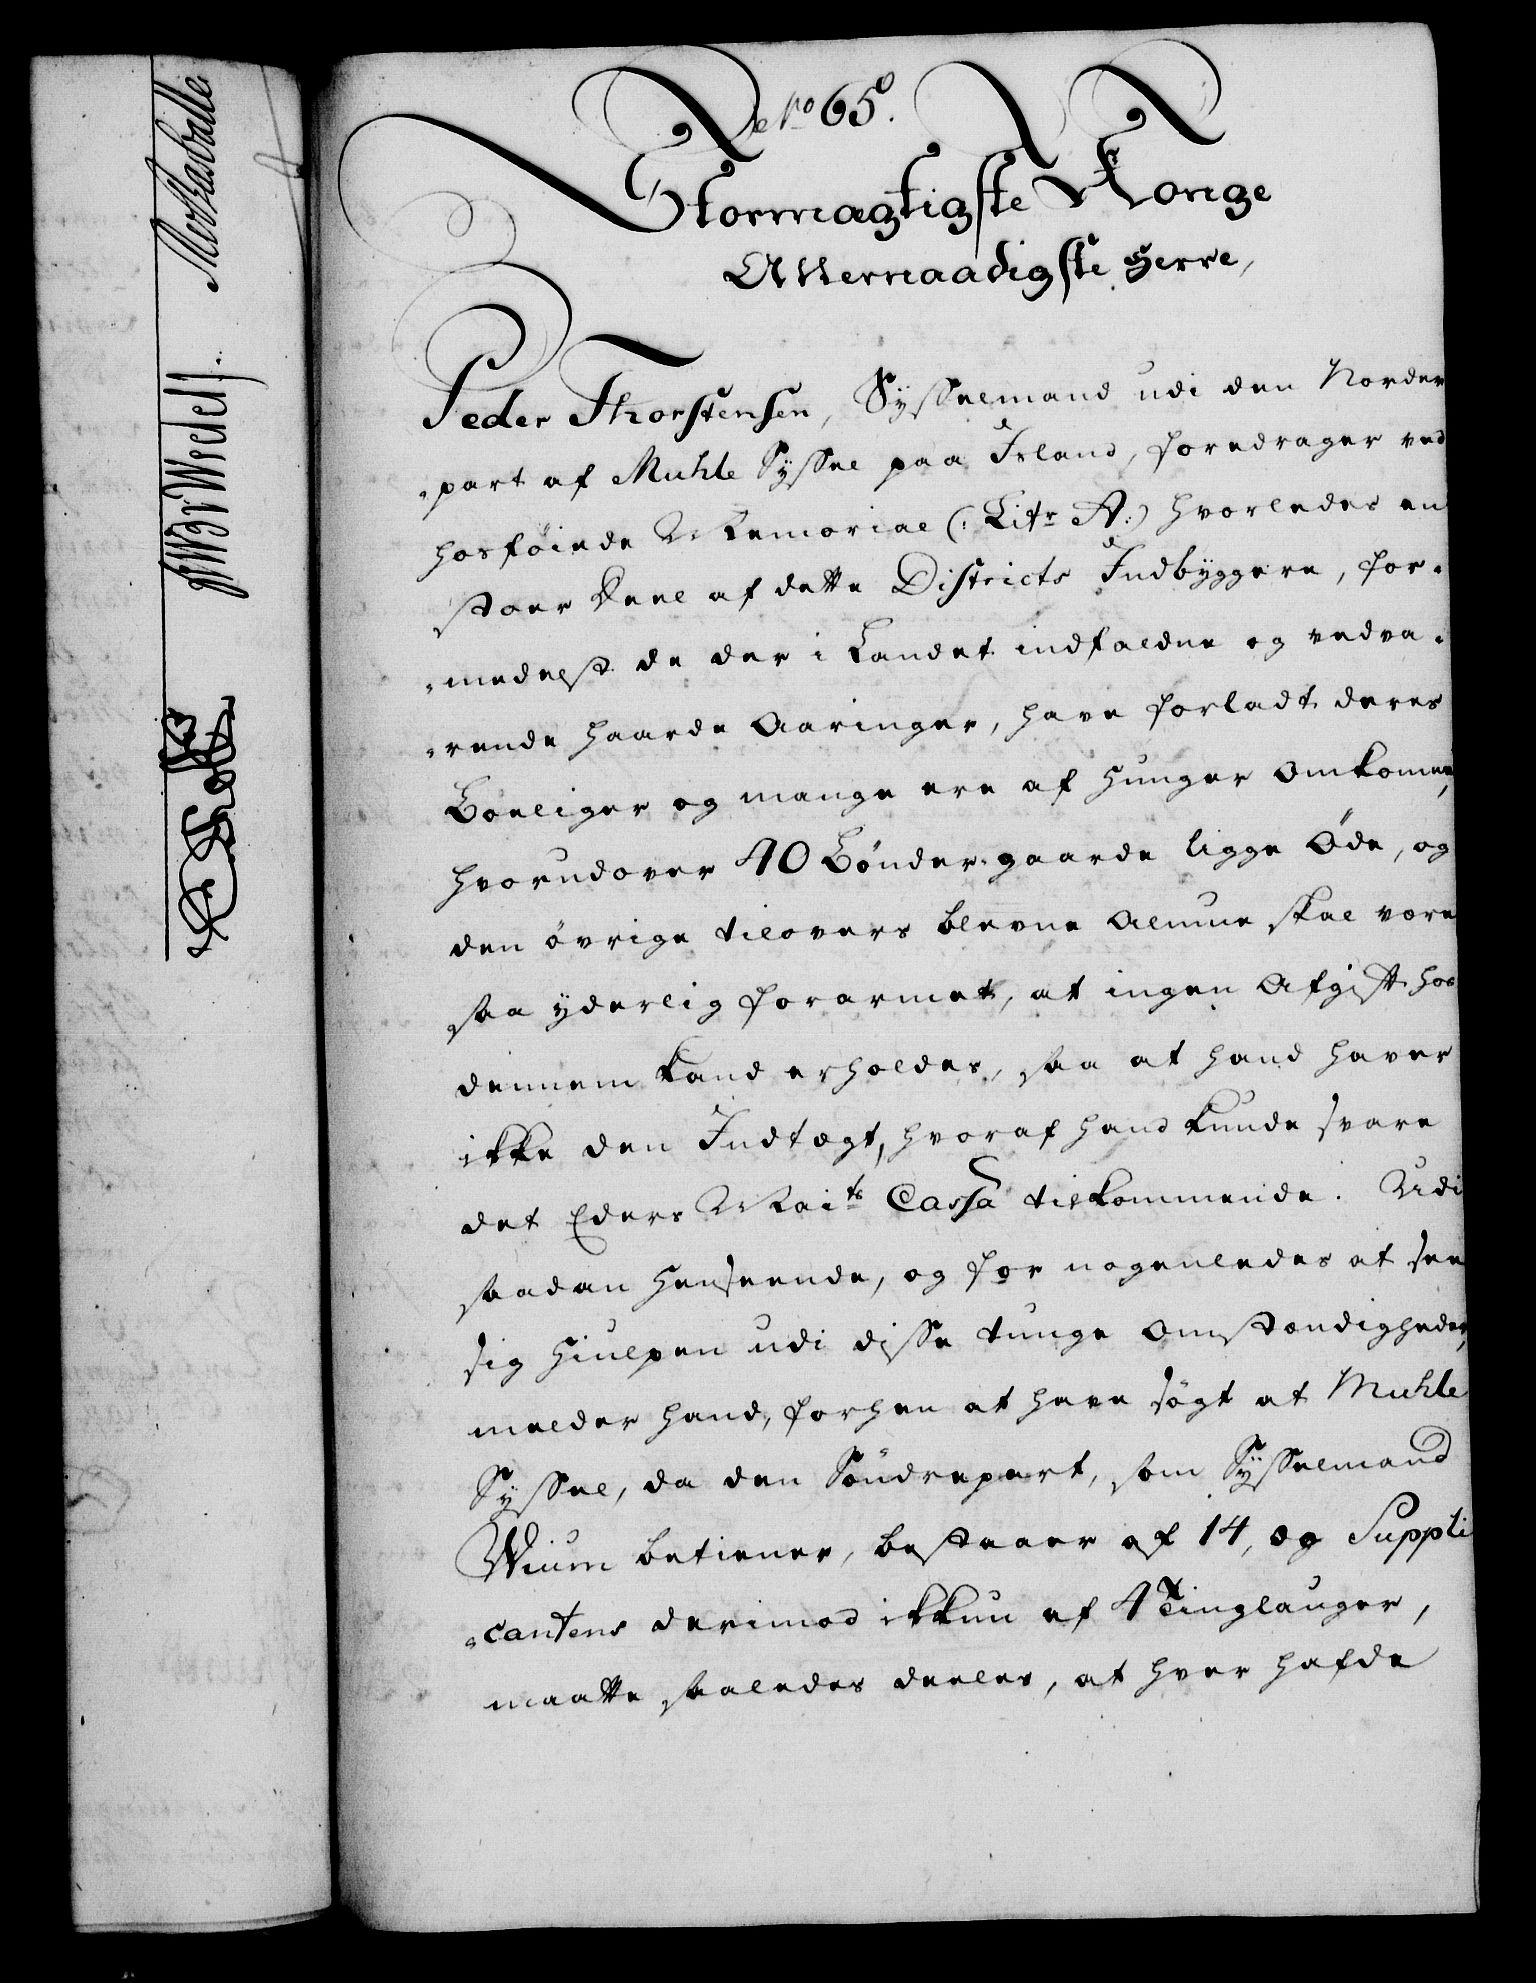 No 65.
Stormægtigste Konge
Allernaadigste Herre,
Peder Thorstensen, Sysselmand udi den Norder
-part af Muhle Syssel paa Island, foredrager ved
hosføiede Memorial (: Litr A:) hvorledes en
stoer Deel af dette Districts Indbyggere, for-
-medelst de der i Landet indfaldne og vedva-
-rende haarde Aaringer, have forladt deres
Boeliger og mange ere af Hunger omkomne,
hvorudover 40 Bønder-gaarde ligge Øde, og
den øvrige tilovers blevne Almue skal være
saa yderlig forarmet, at ingen Afgift hos
dennem kand erholdes, saa at hand haver
ikke den Indtægt, hvoraf hand kunde svare
det Eders Maits Cassa tilkommende. Udi
saadan Henseende, og for nogenledes at see
sig hiulpen udi disse tunge Omstændigheder,
melder hand, forhen at have søgt at Muhle
Syssel, da den Søndrepart, som Sysselmand
Wium betiener, bestaaer af 14, og Suppli
-cantens derimod ikkun af 4 Tinglauger,
maatte saaledes deeles, at hver hafde